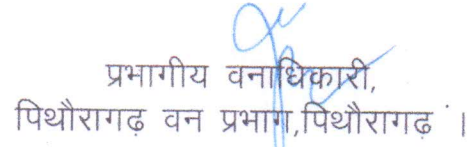 प्रभागीय वनाधिकारी,
पिथौरागढ़ वन प्रभाग,पिथौरागढ़ ।